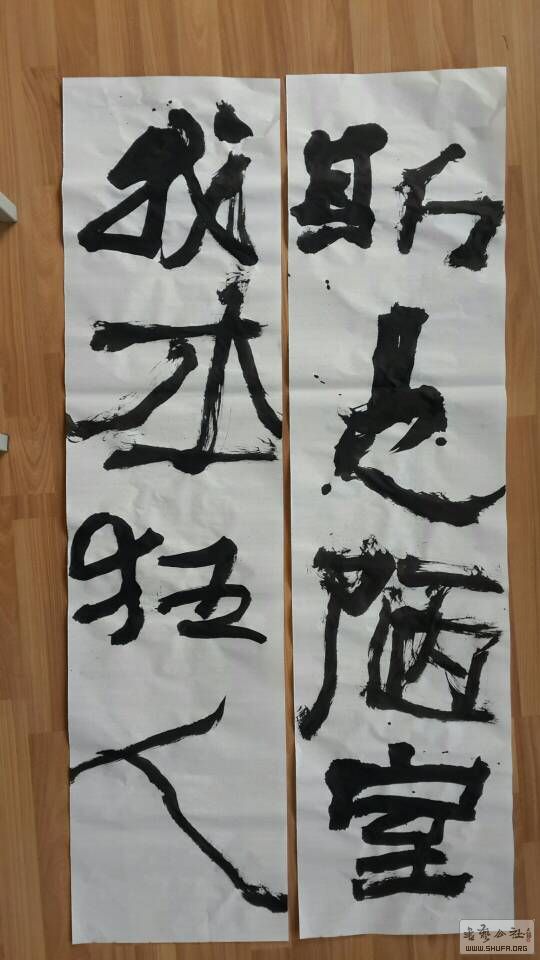 斯是陋室
我本狂人
书艺公社
WWW.SHUFA.ORG